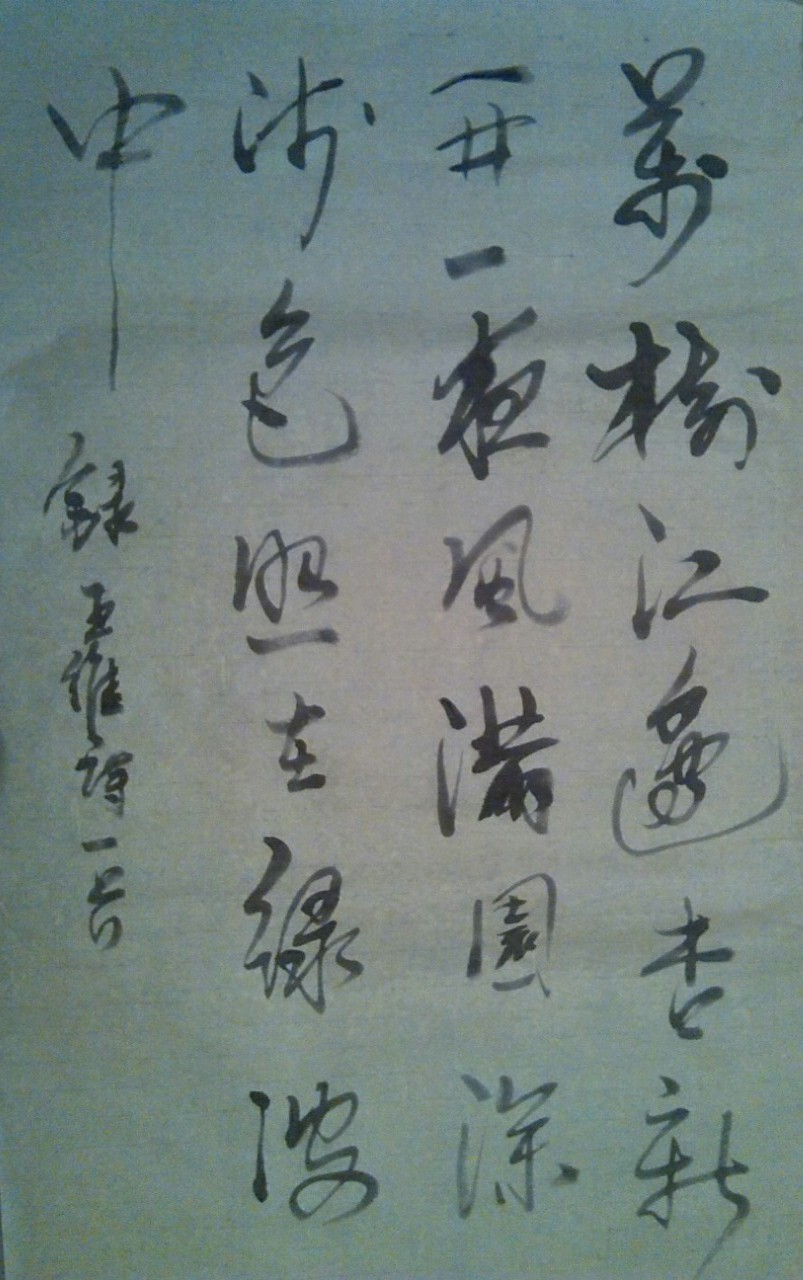 萬樹江邊杏新
开一夜風滿園深
浅色照在綠波
中
錄王維詩一首